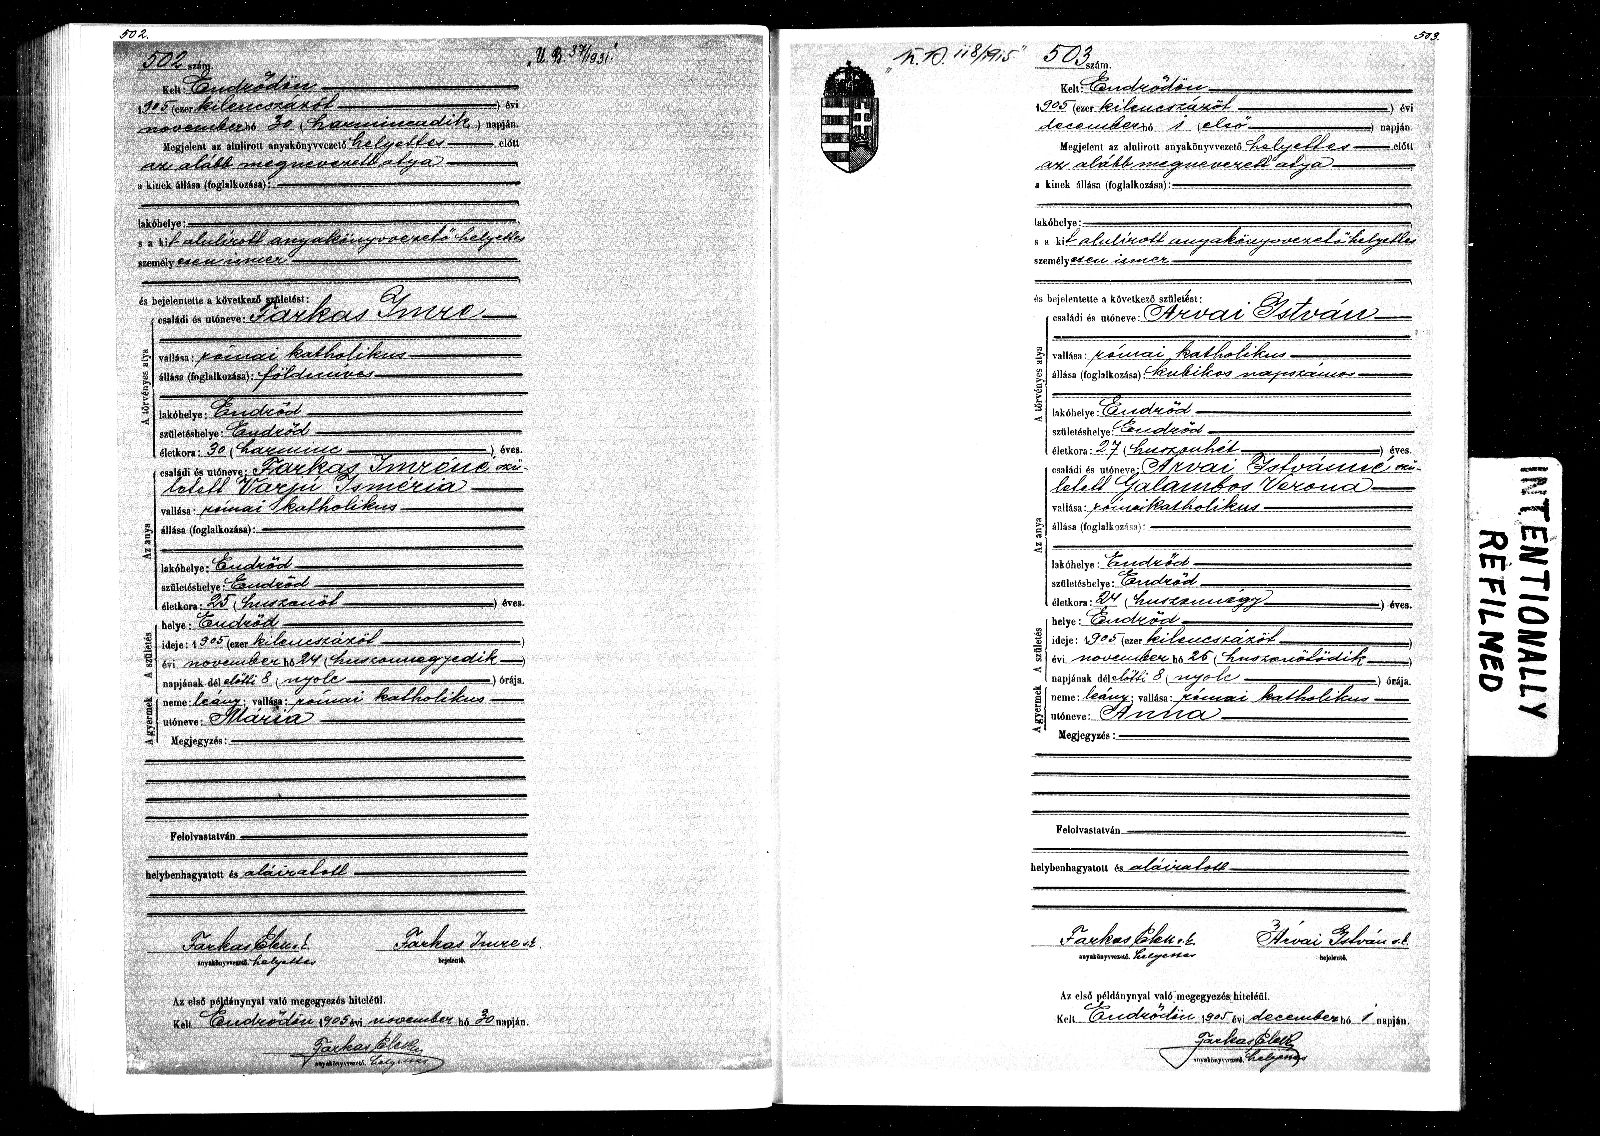 502.
502 szám.
„U. B. 37/1931."
Kelt: Endrődön
1905 (ezer kilencszázöt) évi
november hó 30 (harminczadik) napján.
Megjelent az alulirott anyakönyvvezető helyettes előtt
az alább megnevezett atya
a kinek állása (foglalkozása):
lakóhelye:
s a kit alulirott anyakönyvvezető helyettes
személyesen ismer
és bejelentette a következő születést:
A törvényes atya
családi és utóneve: Farkas Imre
vallása: római katholikus
állása (foglalkozása): földmíves
lakóhelye: Endrőd
születéshelye: Endrőd
életkora: 30 (harminc) éves.
Az anya
családi és utóneve: Farkas Imréné szü-
letett Varjú Isméria
vallása: római katholikus
állása (foglalkozása):
lakóhelye: Endrőd
születéshelye: Endrőd
életkora: 25 (huszonöt) éves.
A születés
helye: Endrőd
ideje: 1905 (ezer kilencszázöt)
évi november hó 24 (huszonnegyedik)
napjának dél előtti 8 (nyolc) órája.
A gyermek
neme: leány; vallása: római katholikus
utóneve: Mária
Megjegyzés:
Felolvastatván
helybenhagyatott és aláiratott
Farkas Elek s.k. Farkas Imre s.k.
anyakönyvvezető. helyettes bejelentő.
Az első példánynyal való megegyezés hiteléül.
Kelt Endrődön 1905 évi november hó 30 napján.
Farkas Elek
anyakönyvvezető. helyettes
503.
„K. D. 118/1915"
503 szám.
Kelt: Endrődön
1905 (ezer kilencszázöt) évi
december hó 1 (első) napján.
Megjelent az alulirott anyakönyvvezető helyettes előtt
az alább megnevezett atya
a kinek állása (foglalkozása):
lakóhelye:
s a kit alulirott anyakönyvvezető helyettes
személyesen ismer
és bejelentette a következő születést:
A törvényes atya
családi és utóneve: Arvai István
vallása: római katholikus
állása (foglalkozása): kubikos napszámos
lakóhelye: Endrőd
születéshelye: Endrőd
életkora: 27 (huszonhét) éves.
Az anya
családi és utóneve: Arvai Istvánné szü-
letett Galambos Verona
vallása: római katholikus
állása (foglalkozása):
lakóhelye: Endrőd
születéshelye: Endrőd
életkora: 24 (huszonnégy) éves.
A születés
helye: Endrőd
ideje: 1905 (ezer kilencszázöt)
évi november hó 25 (huszonötödik)
napjának dél előtti 8 (nyolc) órája.
A gyermek
neme: leány; vallása: római katholikus
utóneve: Anna
Megjegyzés:
Felolvastatván
helybenhagyatott és aláiratott
Farkas Elek s.k. Árvai István s.k.
anyakönyvvezető. helyettes bejelentő.
Az első példánynyal való megegyezés hiteléül.
Kelt Endrődön 1905 évi december hó 1 napján.
Farkas Elek
anyakönyvvezető. helyettes
INTENTIONALLY
REFILMED